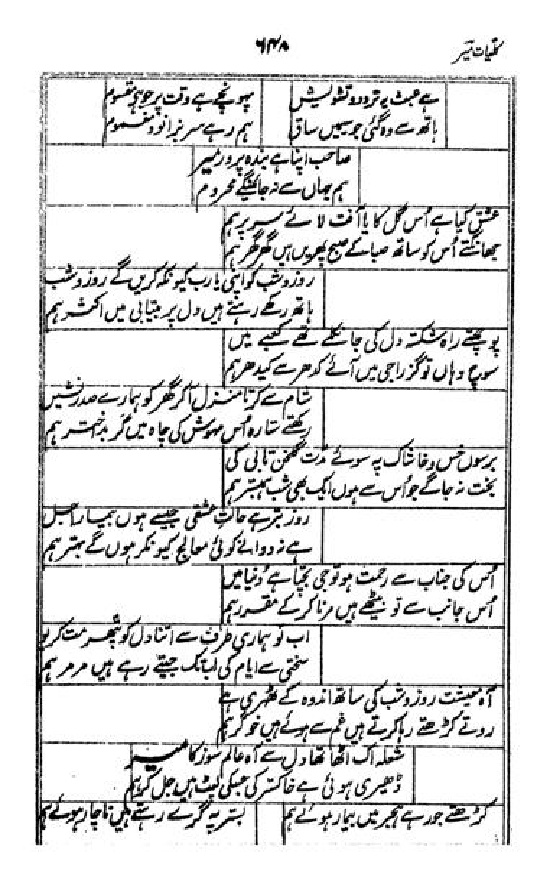 کلیات میر
۶۴۸
ہے عبث یہ تردد و تشویش
پہونچے ہے وقت پر جو ہے مقسوم
ہاتھ سے وہ گئی جو سیمیں ساق
ہم رہے سر بزانو و مغموم
صاحب اپنا ہے بندہ پرور میر
ہم جہاں سے نہ جائینگے محروم
عشق کیا ہے اُس گل کا یا آفت لائے سر پر ہم
جھانکتے اُس کو ساتھ صبا کے صبح پھریں ہیں گھر گھر ہم
روز و شب کو اپنی یا رب کیونکہ کریں گے روز و شب
ہاتھ رکھے رہتے ہیں دل پر بیتابی میں اکثر ہم
پوچھتے راہ شکستہ دل کی جا نکلے تھے کعبے میں
سو وہاں تو گزرا جی میں آئے کدھر سے کیدھر ہم
شام سے کرتا منزل آ کر گھر کو ہمارے صدر نشیں
رکھتے ستارہ اُس مہوش کی چاہ میں گر بد اختر ہم
برسوں خس و خاشاک پہ سوئے مدت گلخن تابی کی
بخت نہ جاگے جو اُس سے ہوں ایک بھی شب ہمبستر ہم
روز بتر ہے حالت عشقی جیسے ہوں بیمار اجل
ہے نہ دوا نے کوئی معالج کیونکر ہوں گے بہتر ہم
اُس کی جناب سے رحمت ہو تو جی بچتا ہے دُنیا میں
اُس جانب سے تو بیٹھے ہیں مرنا کر کے مقرر ہم
اب تو ہماری طرف سے اتنا دل کو پتھر مت کریو
سختی سے ایام کی اب تک جیتے رہے ہیں مر مر ہم
آہ معیشت روز و شب کی ساتھ اندوہ کے ٹھہری ہے
روتے کڑھتے رہا کرتے ہیں غم سے ہوئے ہیں خوگر ہم
شعلہ اک اٹھا تھا دل سے آہ عالم سوز کا میر
ڈھیری ہوئی ہے خاکستر کی جیسی لپٹ میں جل کر ہم
کڑھتے جو رہے ہجر میں بیمار ہوئے ہم
بستر پہ گرے رہتے ہیں ناچار ہوئے ہم